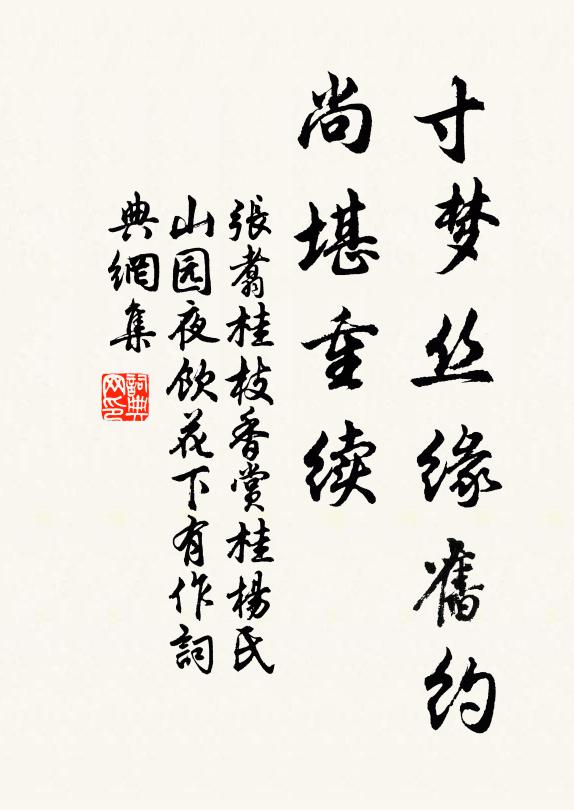 寸梦丝缘舊约
尚堪重续
張翥桂枝香賞桂楊氏
山园夜饮花下有作詞
典網集
詞典
网印